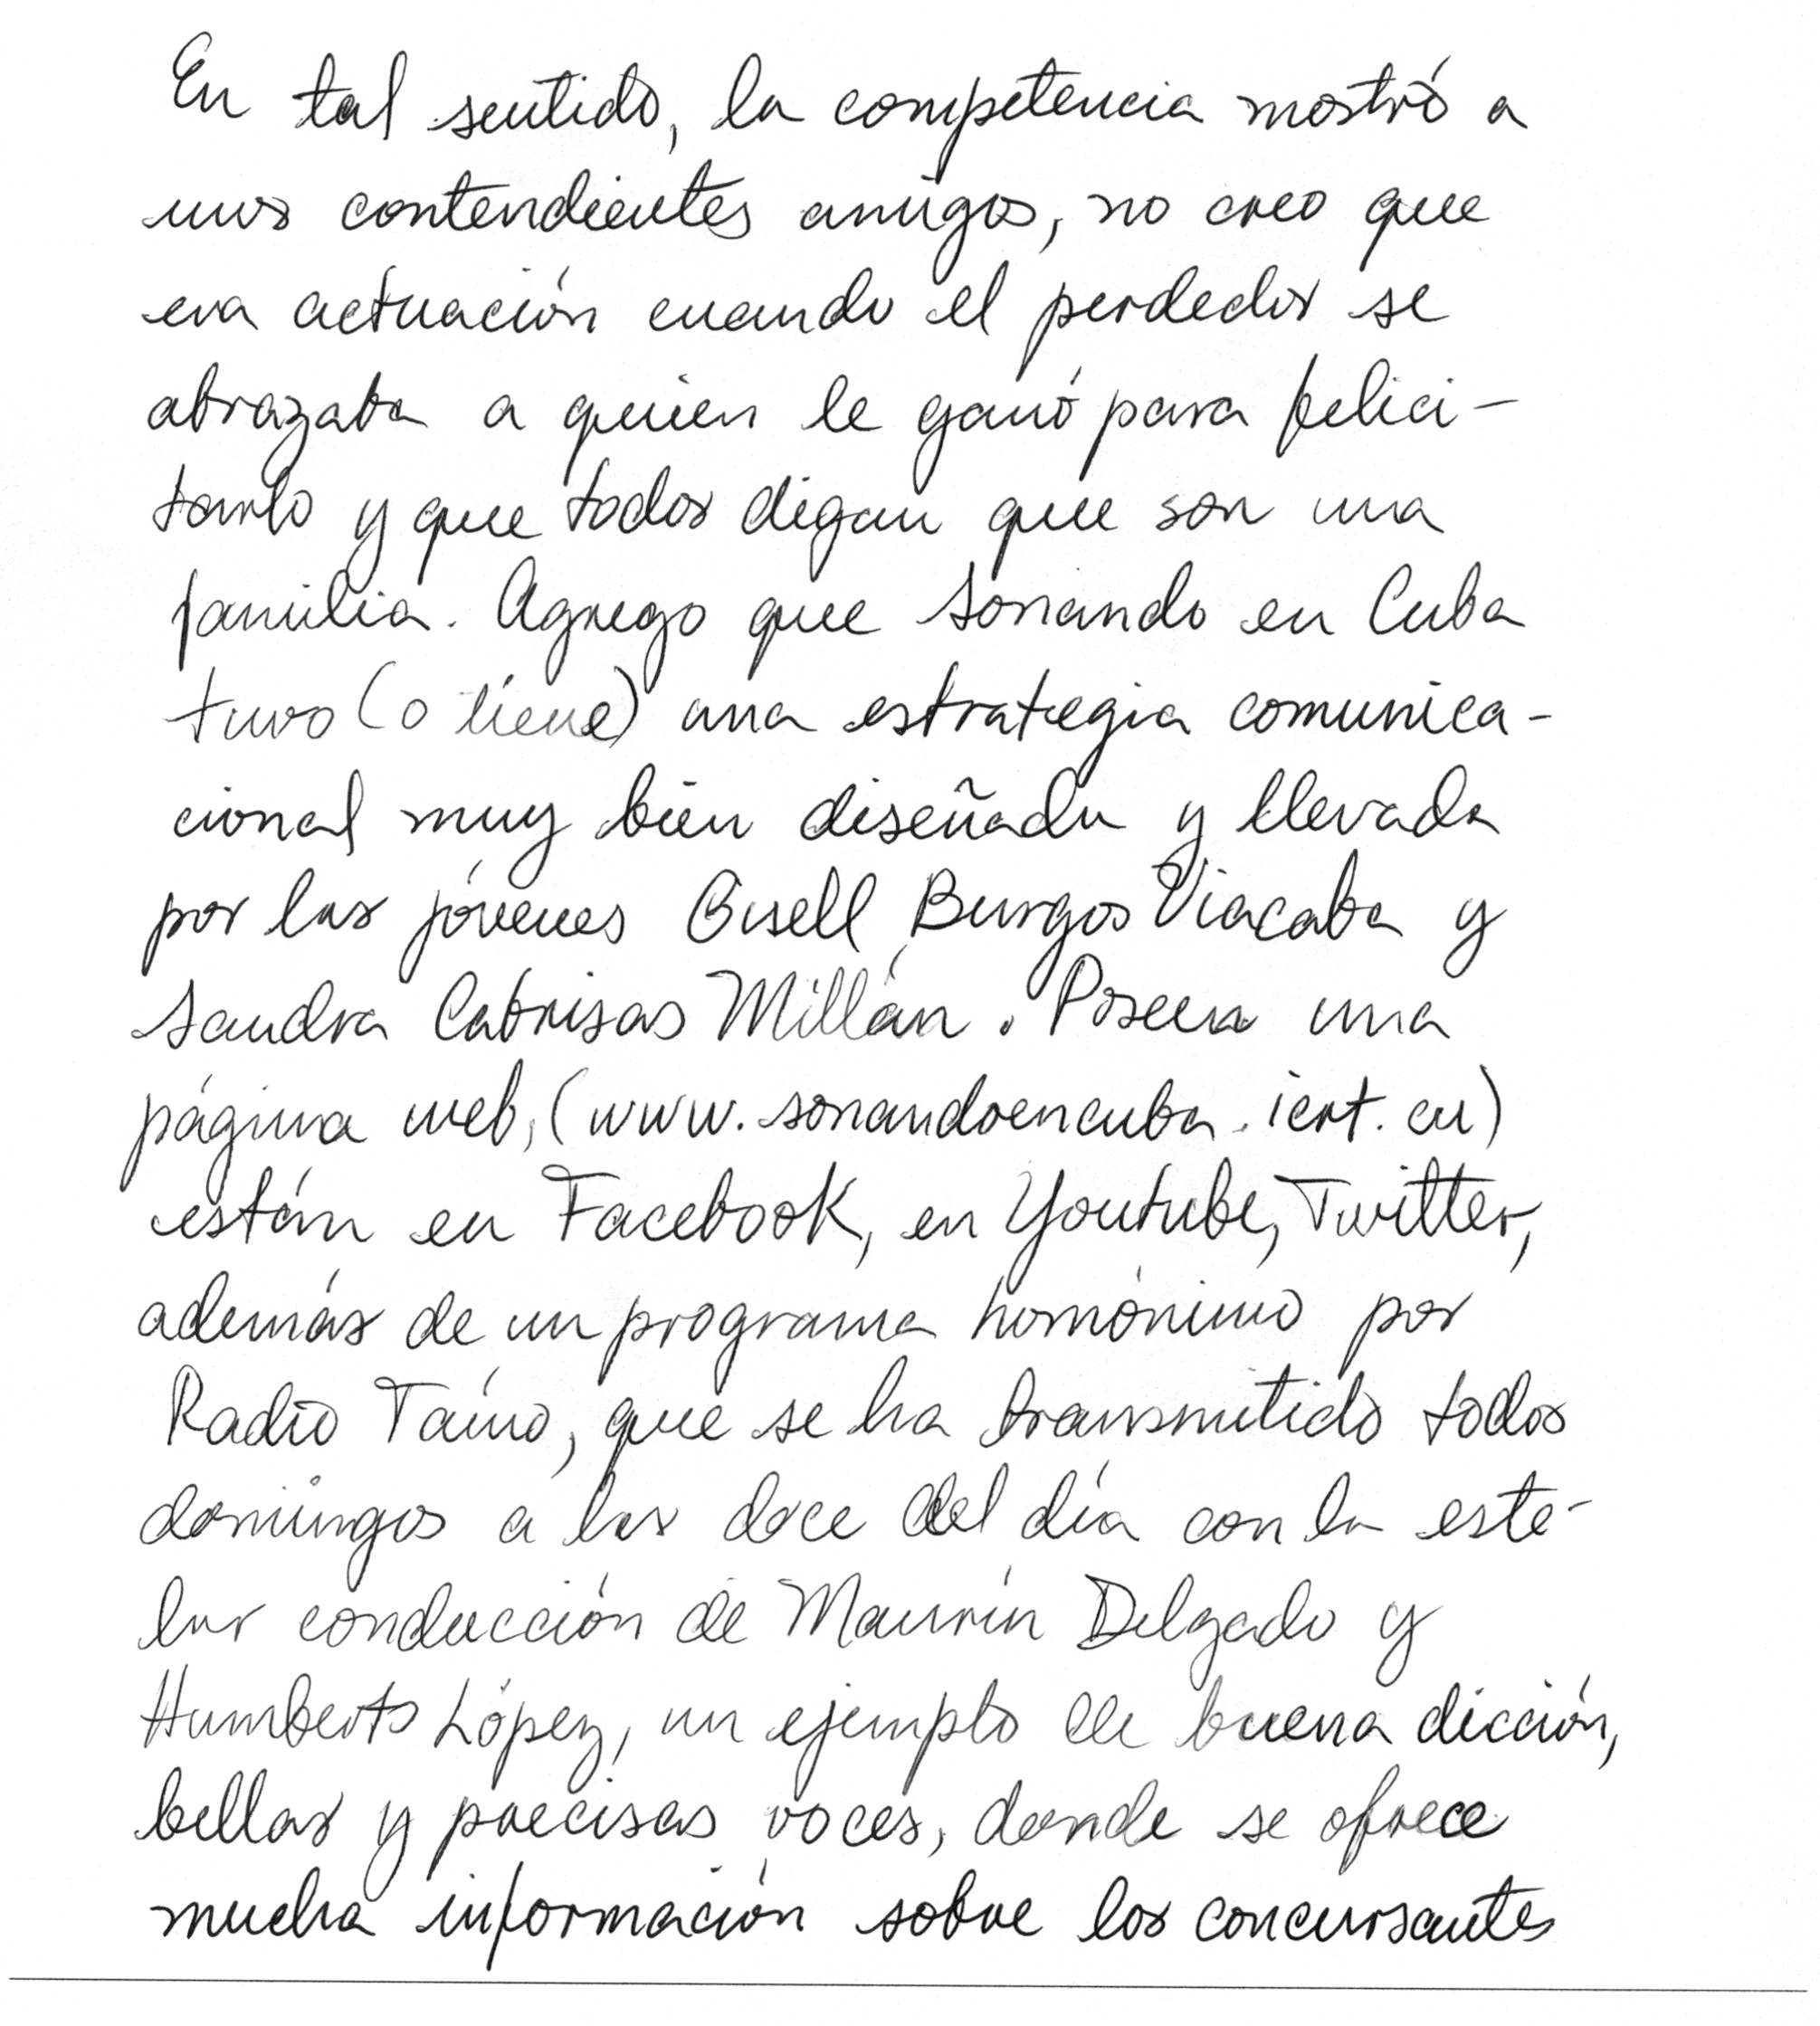 En tal sentido, la competencia mostró a
unos contendientes amigos, no creo que
era actuación cuando el perdedor se
abrazaba a quien le ganó para felici-
tarlo y que todos digan que son una
familia. Agrego que Sonando en Cuba
tuvo (o tiene) una estrategia comunica-
cional muy bien diseñada y llevada
por las jóvenes Gisell Burgos Viacaba y
Sandra Cabrisas Millán. Poseen una
página web, (www.sonandoencuba.icrt.cu)
están en Facebook, en Youtube, Twitter,
además de un programa homónimo por
Radio Taíno, que se ha transmitido todos
domingos a las doce del día con la este-
lar conducción de Maurín Delgado y
Humberto López, un ejemplo de buena dicción,
bellas y precisas voces, donde se ofrece
mucha información sobre los concursantes